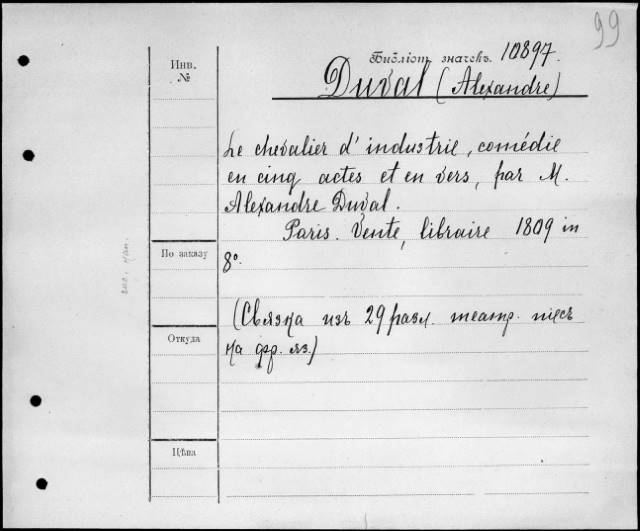 99
Библіот. значекъ. 10897.
Инв.
№
Duval (Alexandre)
Le chevalier d'industrie, comédie
en cinq actes et en vers, par M.
Alexandre Duval.
Paris. Vente, libraire 1809 in
8º.
По заказу
(Связка изъ 29 разл. театр. пiесъ
на фр. яз.)
Откуда
Цѣна